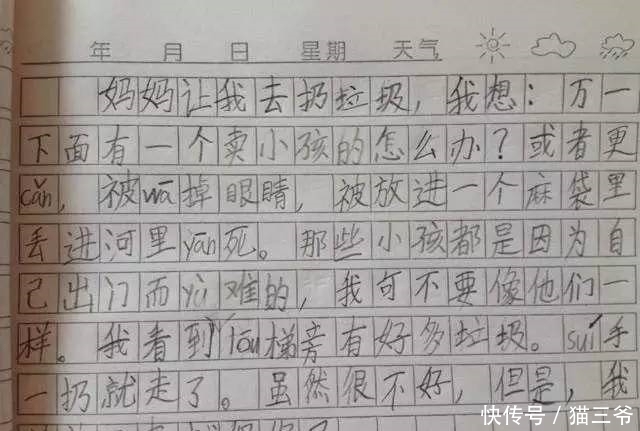 年 月 日 星期 天气
妈妈让我去扔垃圾，我想：万一
下面有一个卖小孩的怎么办？或者更
cǎn，被wā掉眼睛，被放进一个麻袋里
丢进河里yān死。那些小孩都是因为自
己出门而yù难的，我可不要像他们一
样。我看到lóu梯旁有好多垃圾。suí手
一扔就走了。虽然很不好，但是，我
快传号/猫三爷